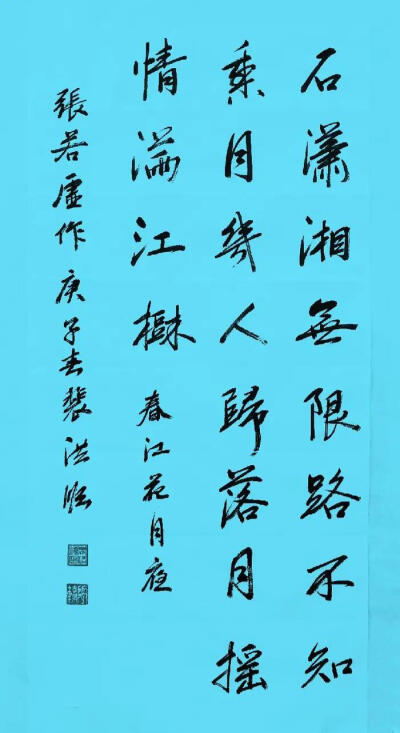 石瀟湘無限路不知
乘月幾人歸落月摇
情滿江樹 春江花月夜
張若虛作 庚子春裴洪